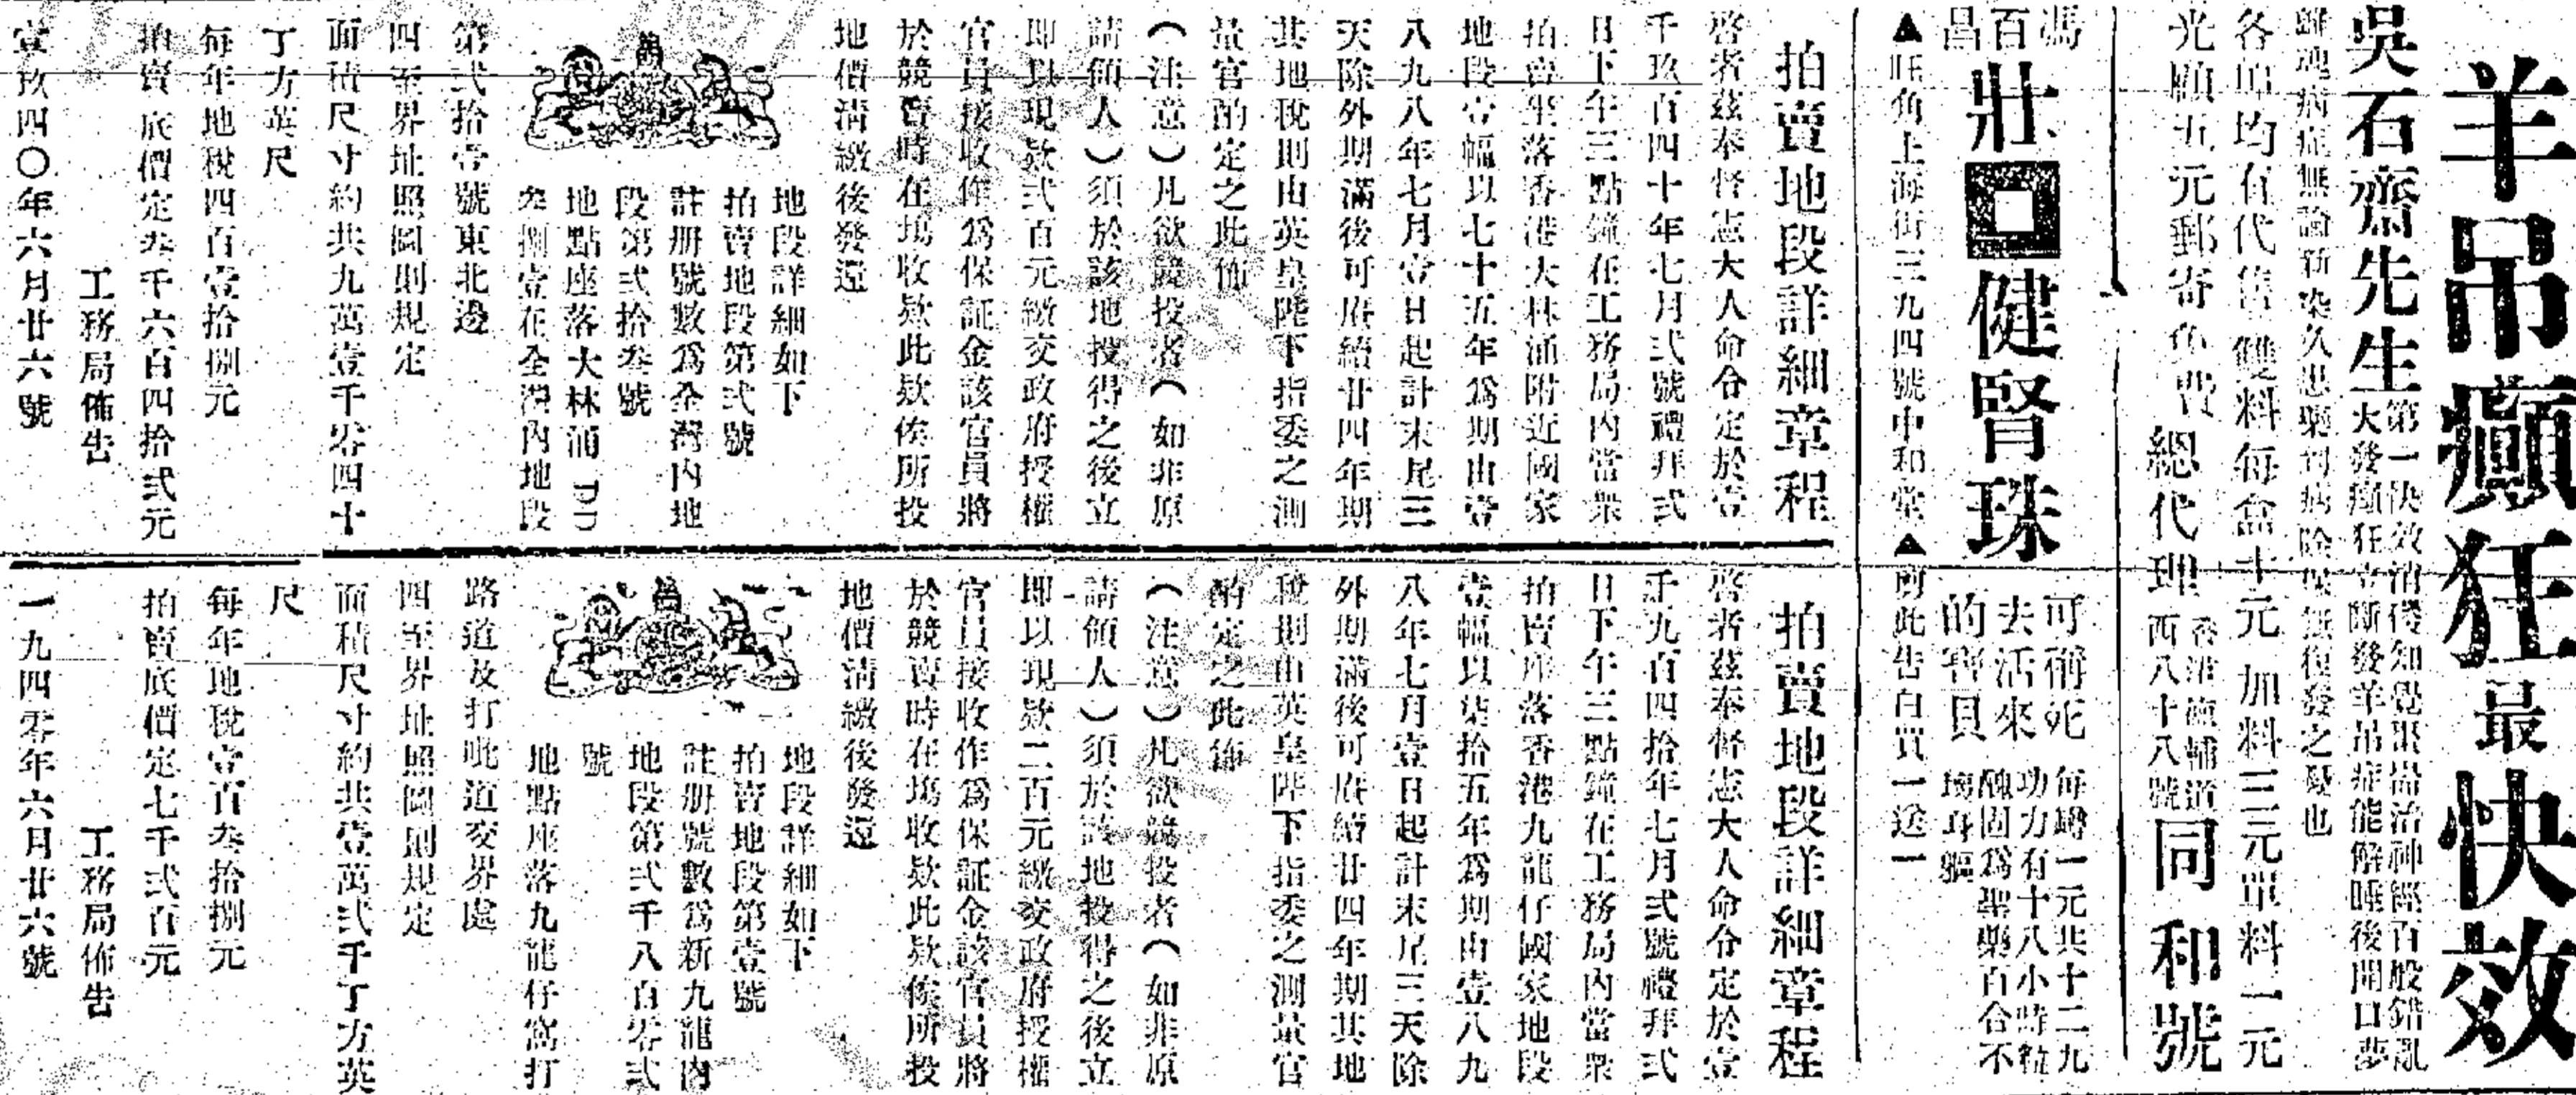 羊吊癲狂最快效
吳石齋先生
第一快效治傻知覺出品治神經百般錯亂
大發癲狂立斷發羊吊症能解睡後開口夢
歸魂病症無論新染久患藥到病除保無復發之憂也
各埠均有代售雙料每盒十元加料三元單料一元
光顧五元郵寄免費
總代理
香港德輔道
西八十八號
同和號
馮
百
昌
壯回健腎珠
可稱死
去活來
的寶貝
每罇一元共十二九
功力有十八小時粒
醜固為聖藥百合不
損身軀
▲旺角上海街三九四號中和堂▲剪此告白買一送一
拍賣地段詳細章程
啓者茲奉督憲大人命令定於壹
千玖百四十年七月弍號禮拜弍
日下午三點鐘在工務局內當衆
拍賣坐落香港大林涌附近國家
地段壹幅以七十五年爲期由壹
八九八年七月壹日起計末尾三
天除外期滿後可賡續廿四年期
其地稅則由英皇陛下指委之測
量官酌定之此佈
（注意）凡欲競投者（如非原
請領人）須於該地投得之後立
即以現欵弍百元繳交政府授權
官員接收作爲保証金該官員將
於競賣時在塲收欵此欵俟所投
地價淸繳後發還
地段詳細如下
拍賣地段第弍號
註册號數爲全灣內地
段第弍拾叁號
地點座落大林涌 DD
叁捌壹在全灣內地段
第弍拾壹號東北邊
四至界址照圖則規定
面積尺寸約共九萬壹千零四十
丁方英尺
每年地稅四百壹拾捌元
拍賣底價定叁千六百四拾弍元
工務局佈告
壹玖四〇年六月廿六號
拍賣地段詳細章程
啓者茲奉督憲大人命令定於壹
千九百四拾年七月弍號禮拜弍
日下午三點鐘在工務局內當衆
拍賣座落香港九龍仔國家地段
壹幅以柒拾五年爲期由壹八九
八年七月壹日起計末尾三天除
外期滿後可賡續廿四年期其地
稅則由英皇陛下指委之測量官
酌定之此佈
（注意）凡欲競投者（如非原
請領人）須於該地投得之後立
即以現欵二百元繳交政府授權
官員接收作爲保証金該官員將
於競賣時在塲收欵此欵俟所投
地價淸繳後發還
地段詳細如下
拍賣地段第壹號
註册號數爲新九龍內
地段第弍千八百零弍
號
地點座落九龍仔窩打
路道及打吡道交界處
四至界址照圖則規定
面積尺寸約共壹萬弍千丁方英
尺
每年地稅壹百叁拾捌元
拍賣底價定七千弍百元
工務局佈告
一九四零年六月廿六號